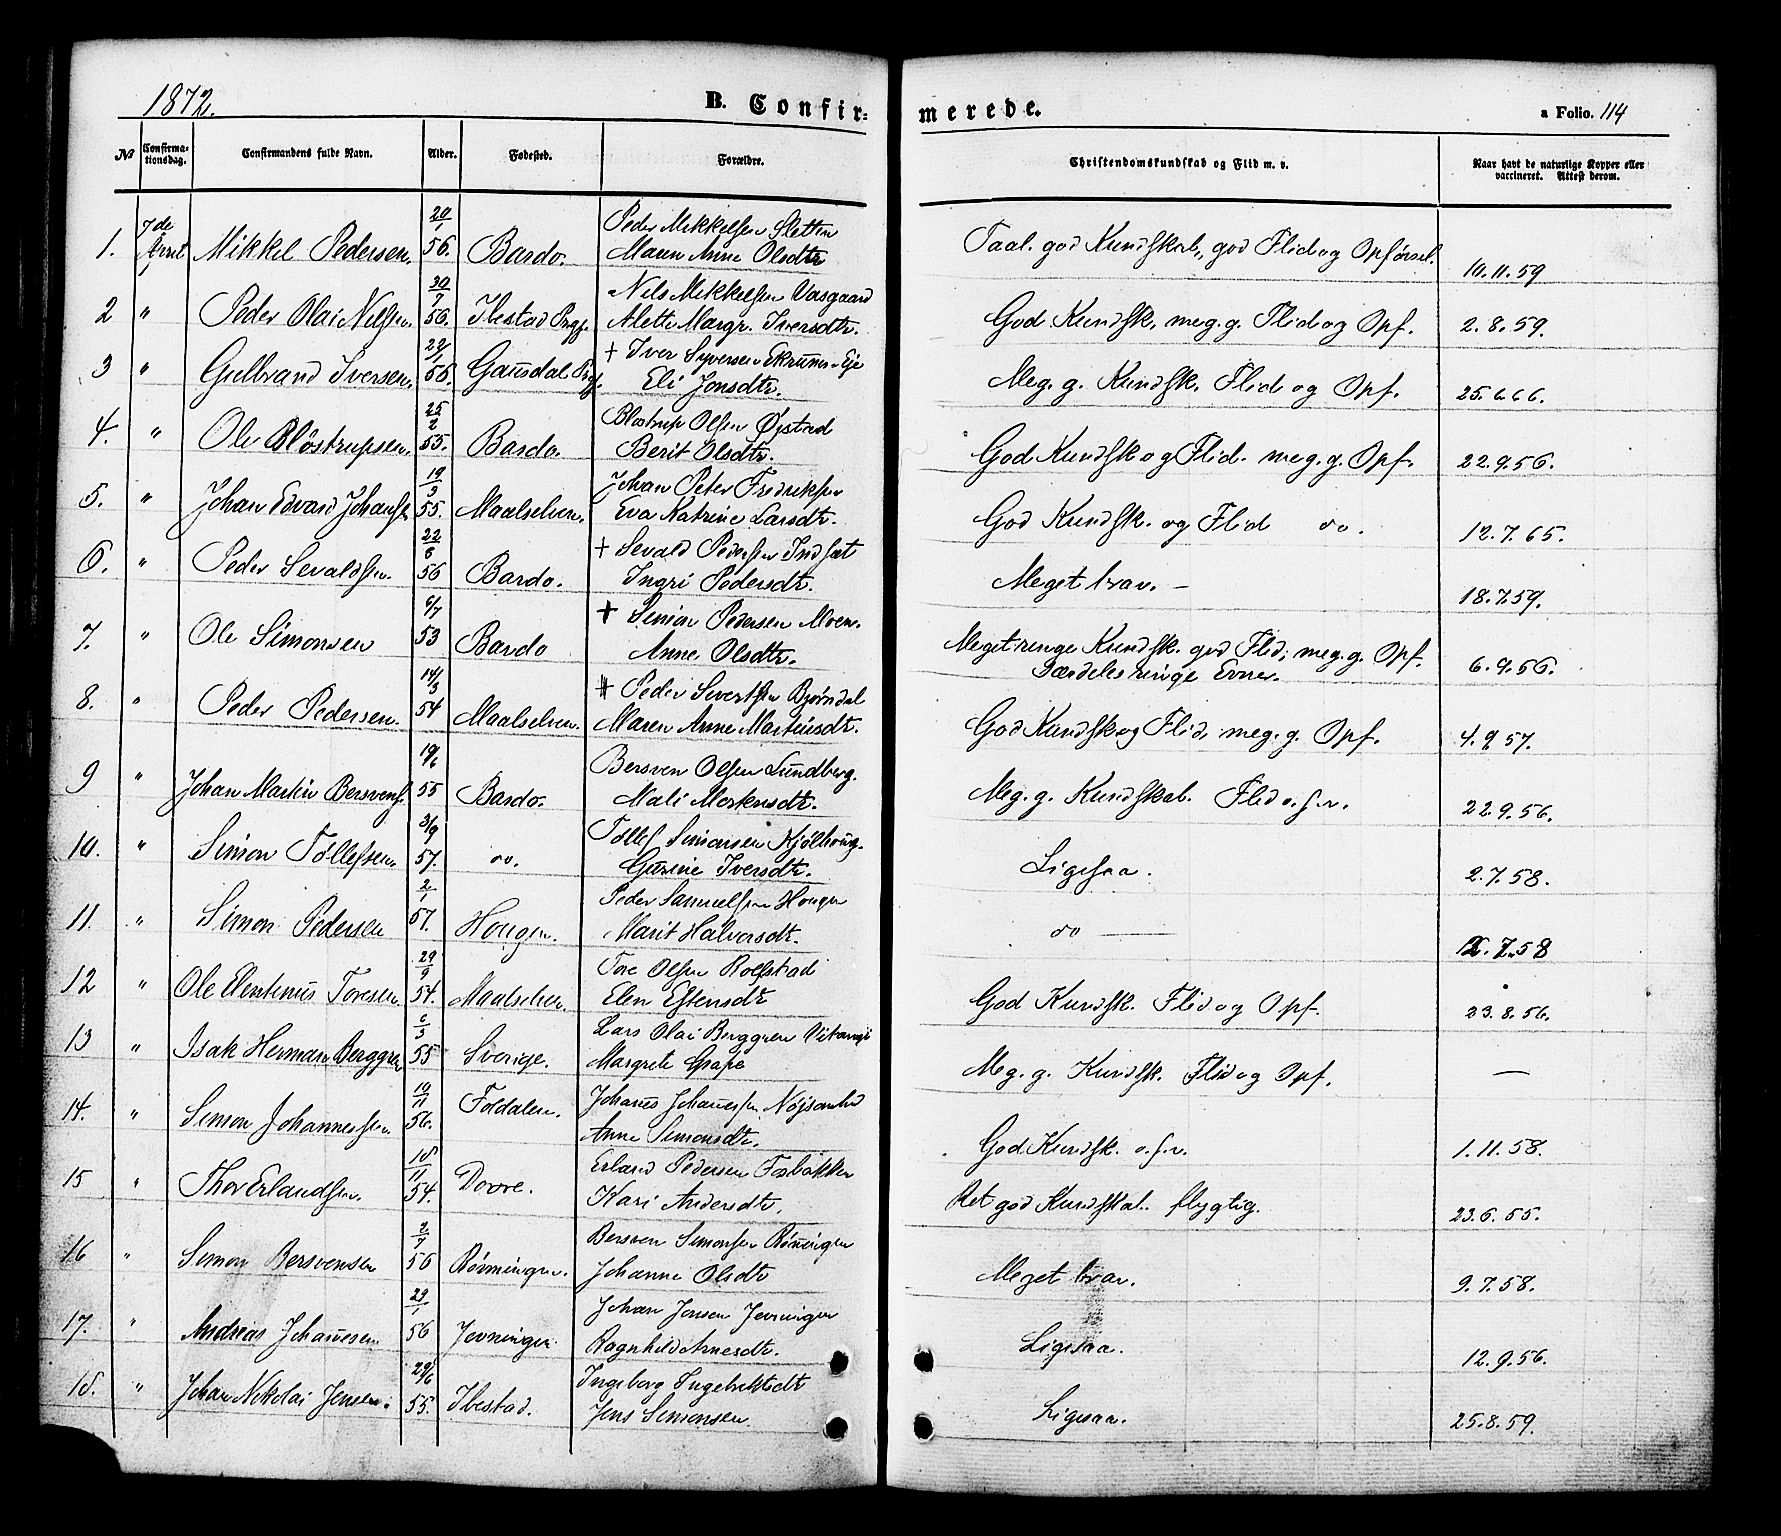 1872. B. Confirmerede. a Folio. 114
№ Confirmationsdag. Confirmandens fulde Navn. Alder. Fødested. Forældre. Christendomskundskab og Flid m. v. Naar havt de naturlige Kopper eller vaccineret. Attest derom.
1. 7de Mikkel Pedersen. 20/1 56. Bardo. Peder Mikkelsen Sletten Maren Anne Olsdtr Taal. god Kundskab, god Flid og Opførsel. 10.11.59
2 " Peder Olai Nilsen. 20/7 56. Ibestad Prgj. Nils Mikkelsen Vasgaard Alette Margr. Iversdtr. God Kundsk, meg. g. Flid og Opf. 2.8.59.
3 " Gulbrand Iversen. 56. Gausdal Prgj. + Iver Syversen Eli Jonsdtr. Meg. g. Kundsk. Flid og Opf. 25.6.66.
4. " Ole Bløstrupsen. 25/2 55. Bardo. Bløstrup Olsen Øystad Berit Olsdtr. God Kundsk og Flid. meg. g. Opf. 22.9.56.
5. " Johan Edvard Johansen 19/3 55. Maalselven. Johan Peter Fredriksen Eva Katrine Larsdtr. God Kundsk. og Flid do. 12.7.65.
6. " Peder Sevaldsen. 22/6 56 Bardo. + Sevald Pedersen Indset Ingri Pedersdtr. Meget brav. — 18.7.59.
7. " Ole Simonsen 6/7 53 Bardo + Simon Pedersen Moen. Anne Olsdtr. Meget ringe Kundsk. god Flid, meg. g. Opf. Særdeles ringe Evner. 6.9.56.
8. " Peder Pedersen. 14/3 54 Maalselven. + Peder Sivertsen Bjørndal Maren Anne Martinusdtr. God Kundsk og Flid, meg. g. Opf. 4.9 57.
9 " Johan Martin Bersvens. 19/6 55 Bardo. Bersven Olsen Lundberg. Mali Mortensdtr. Meg. g. Kundskab. Flid o.s.v. 22.9.56.
10. " Simon Tøllefsen 3/9 57. do. Tøllef Simonsen Kjølhoug. Gurine Iversdtr. Ligesaa. 2.7.58.
11. " Simon Pedersen 2/1 57. Hougen. Peder Samuelsen Hougen Marit Halvorsdtr. do — 7.58
12 " Ole Elentinus Toresen. 29/9 54. Maalselven. Tore Olsen Rolfstad Elen Estensdtr God Kundsk. Flid og Opf. 23.8.56.
13 " Isak Herman Berggren 6/3 55 Sverige. Lars Olai Berggren Margrete Grape Meg. g. Kundsk. Flid og Opf. —
14. " Simon Johannessen. 19/11 56. Foldalen. Johanes Johanessen Anne Simonsdtr. God Kundsk. o.s.v. 1.11.58.
15 " Thor Erlandsen. 18/11 54. Dovre. Erland Pedersen Fosbakken Kari Andersdtr. Ret god Kundskab. flygtig. 23.6.55.
16 " Simon Bersvensen 2/7 56 Rønningen. Bersven Simonsen Rønningen Johanne Olsdtr Meget brav. 9.7.58.
17. " Andreas Johanesen 29/1 56 Jevninger. Johan Jensen Jevninger Ragnhild Arnesdtr. Ligesaa. 12.9.56.
18. " Johan Nikolai Jensen. 29/6 55. Ibestad. Ingeborg Ingebriktsdtr Jens Simonsen. Ligesaa. 25.8.59.